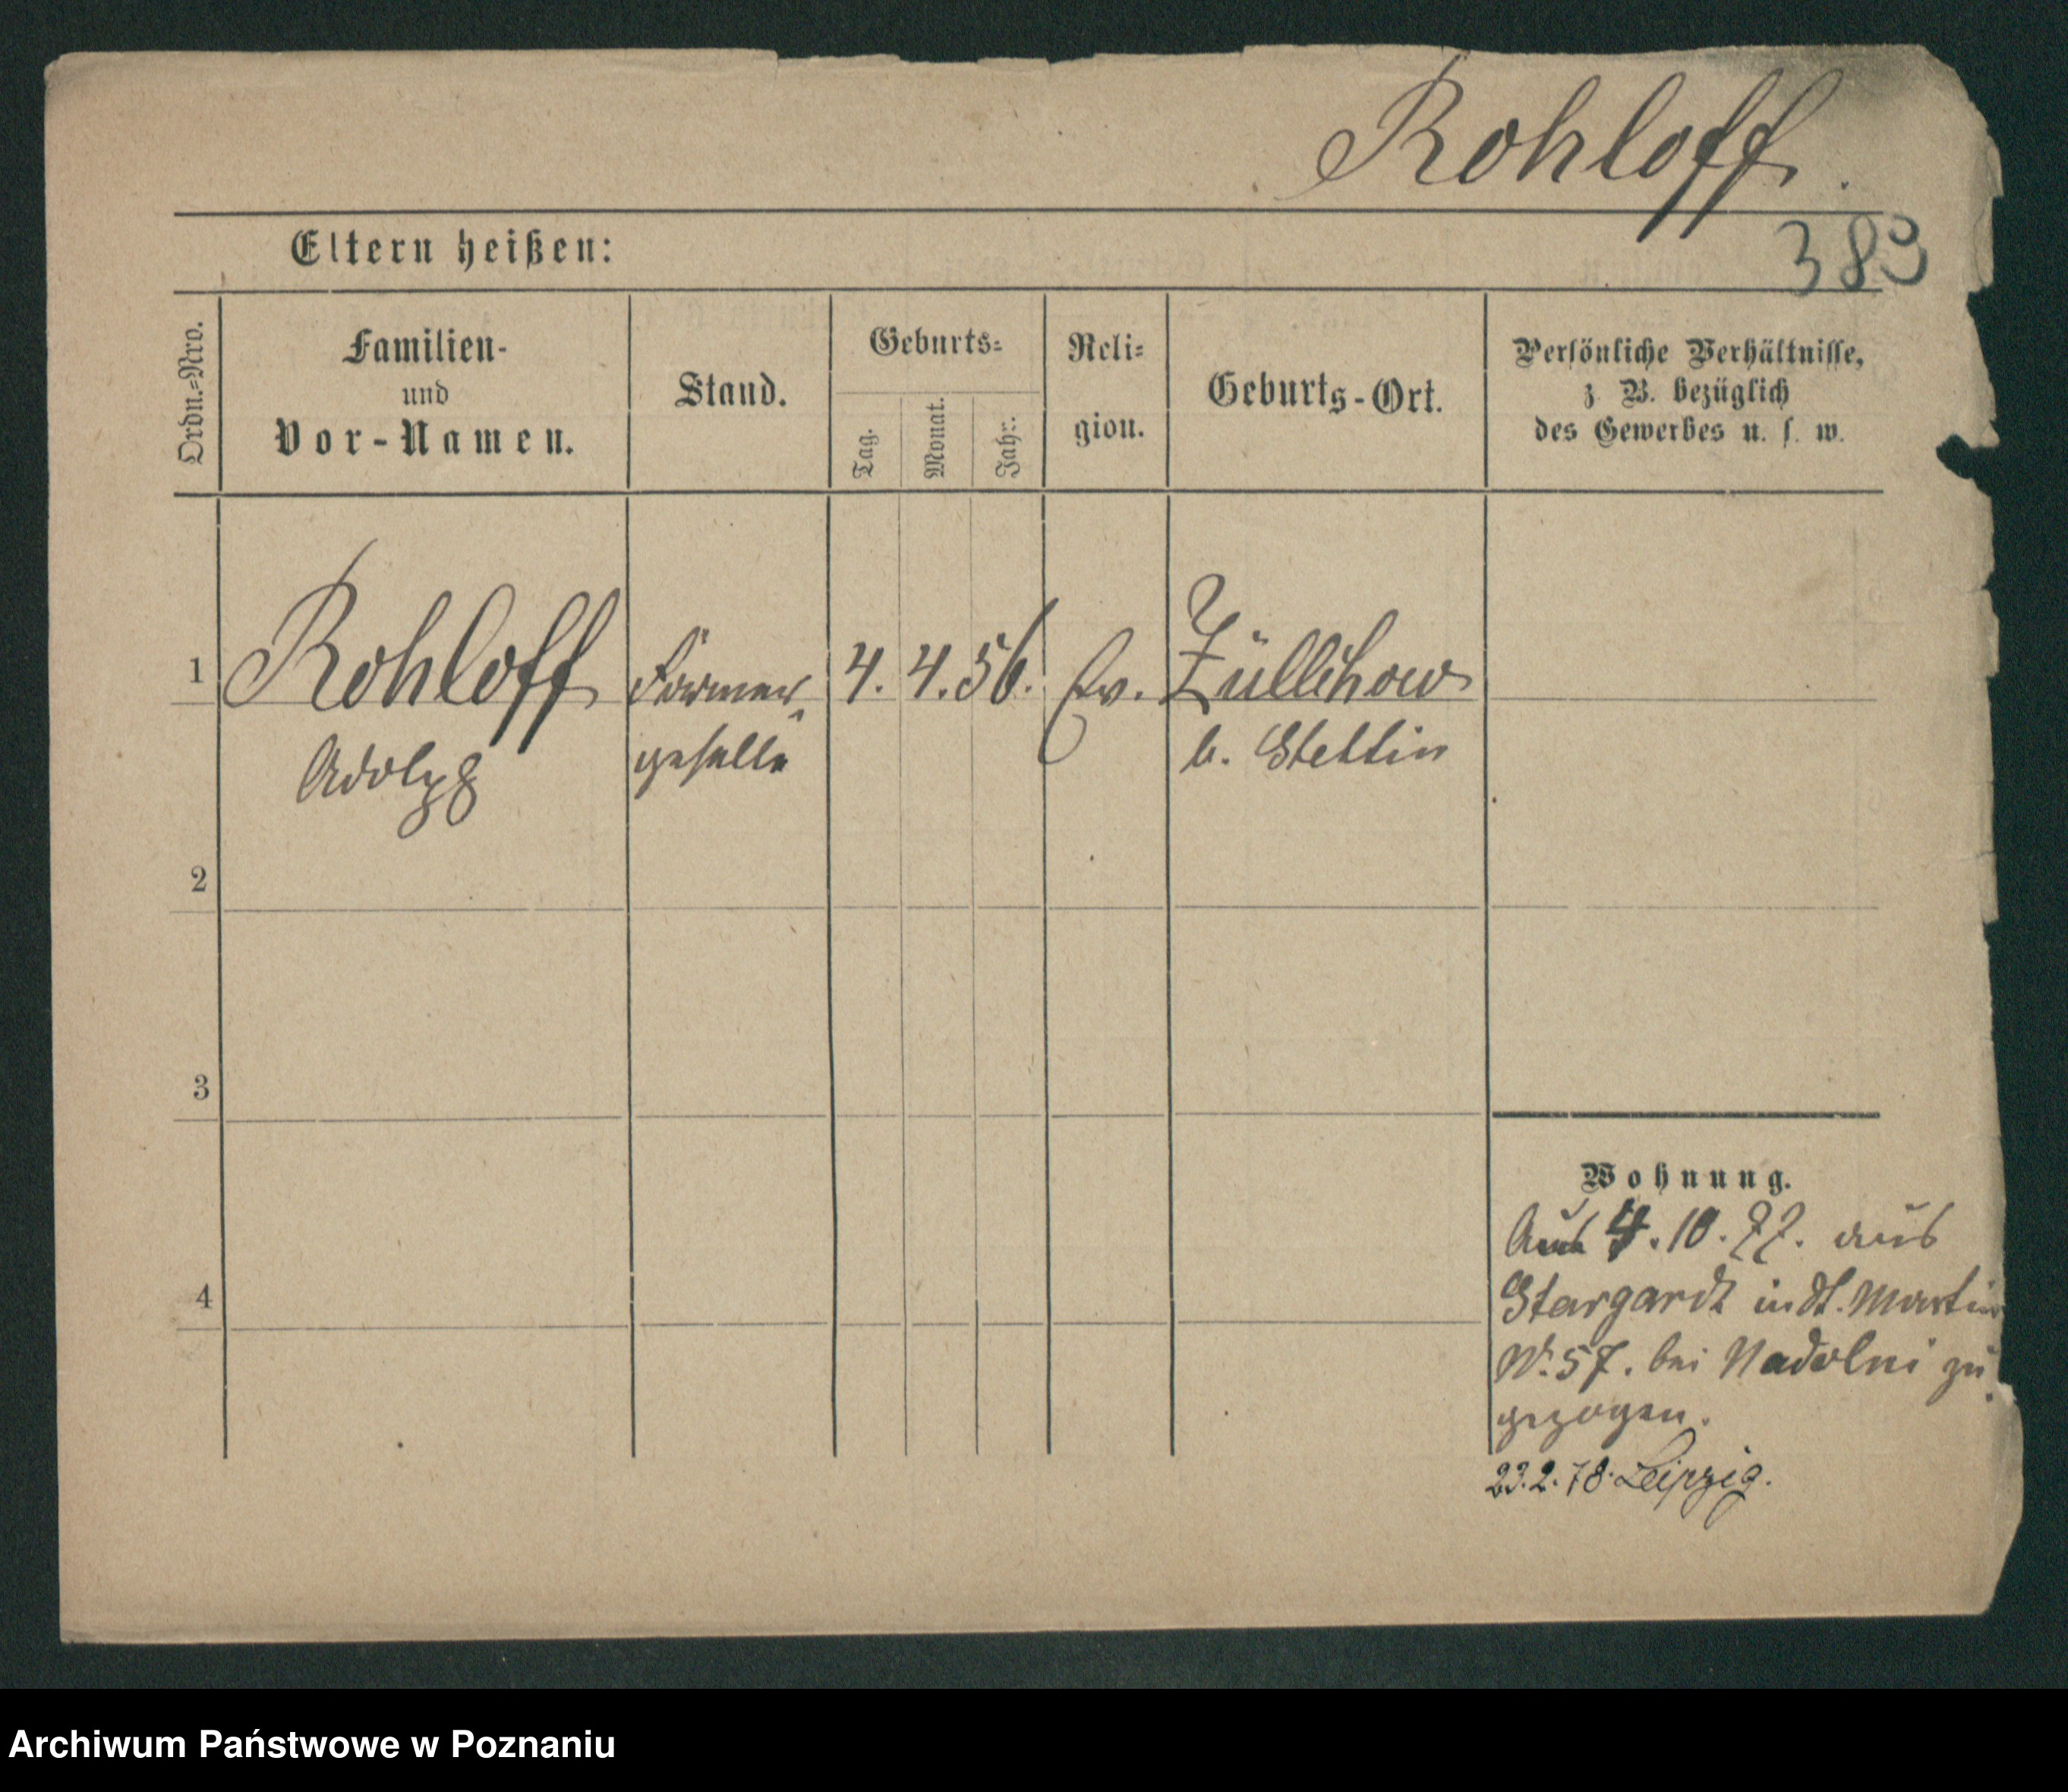 Rohloff.
383
Eltern heißen:
Ordn.=Nro.
Familien-
und
Vor-Namen.
Stand.
Geburts=
Tag.
Monat.
Jahr.
Reli=
gion.
Geburts-Ort.
Persönliche Verhältnisse,
z. B. bezüglich
des Gewerbes u. s. w.
1
Rohloff
Adolph
Former
geselle
4. 4. 56.
Ev.
Züllchow
b. Stettin
2
3
4
Wohnung.
4. 10. 77. aus
Stargardt in St. Martin
No. 57. bei Nadolni zu
gezogen.
23.2.78. Leipzig.
Archiwum Państwowe w Poznaniu